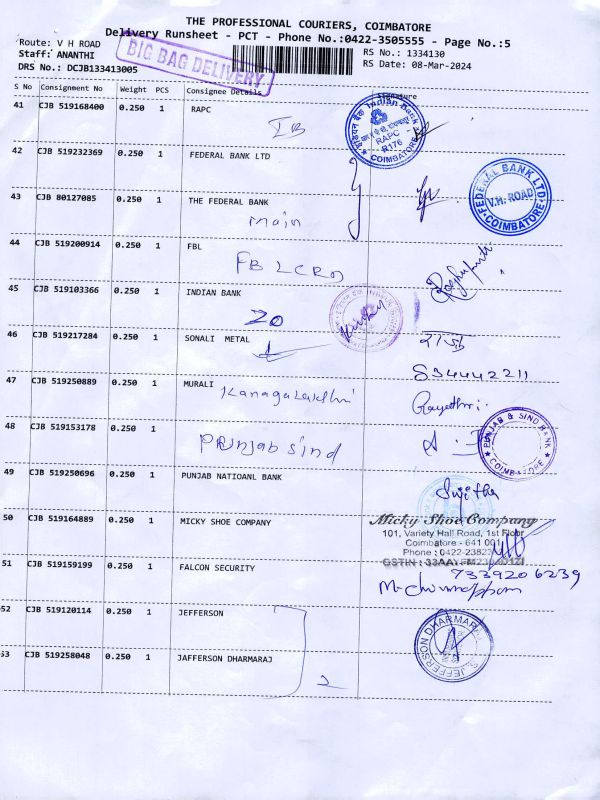 THE PROFESSIONAL COURIERS, COIMBATORE
Delivery Runsheet - PCT - Phone No.:0422-3505555 - Page No.:5
Route: V H ROAD
RS No.: 1334130
Staff: ANANTHI
RS Date: 08-Mar-2024
DRS No.: DCJB133413005
BIG BAG DELIVERY
S No Consignment No Weight PCS Consignee Details Signature
41 CJB 519168400 0.250 1 RAPC
IB
Indian Bank
RAPC
R176
COIMBATORE
42 CJB 519232369 0.250 1 FEDERAL BANK LTD
FEDERAL BANK LTD
V.H. ROAD
COIMBATORE
43 CJB 80127085 0.250 1 THE FEDERAL BANK
main
44 CJB 519200914 0.250 1 FBL
FB LCRD
45 CJB 519103366 0.250 1 INDIAN BANK
ZO
46 CJB 519217284 0.250 1 SONALI METAL
47 CJB 519250889 0.250 1 MURALI
Kanagalakshi
Gayathri
48 CJB 519153178 0.250 1
PRunjab sind
PUNJAB & SIND BANK
COIMBATORE
49 CJB 519250696 0.250 1 PUNJAB NATIOANL BANK
Sujitha
50 CJB 519164889 0.250 1 MICKY SHOE COMPANY
Micky Shoe Company
101, Variety Hall Road, 1st Floor
Coimbatore - 641 001
Phone : 0422-2382
GSTIN :
51 CJB 519159199 0.250 1 FALCON SECURITY
7339206239
52 CJB 519120114 0.250 1 JEFFERSON
53 CJB 519258048 0.250 1 JAFFERSON DHARMARAJ
S. JEFFERSON DHARMARAJ
2